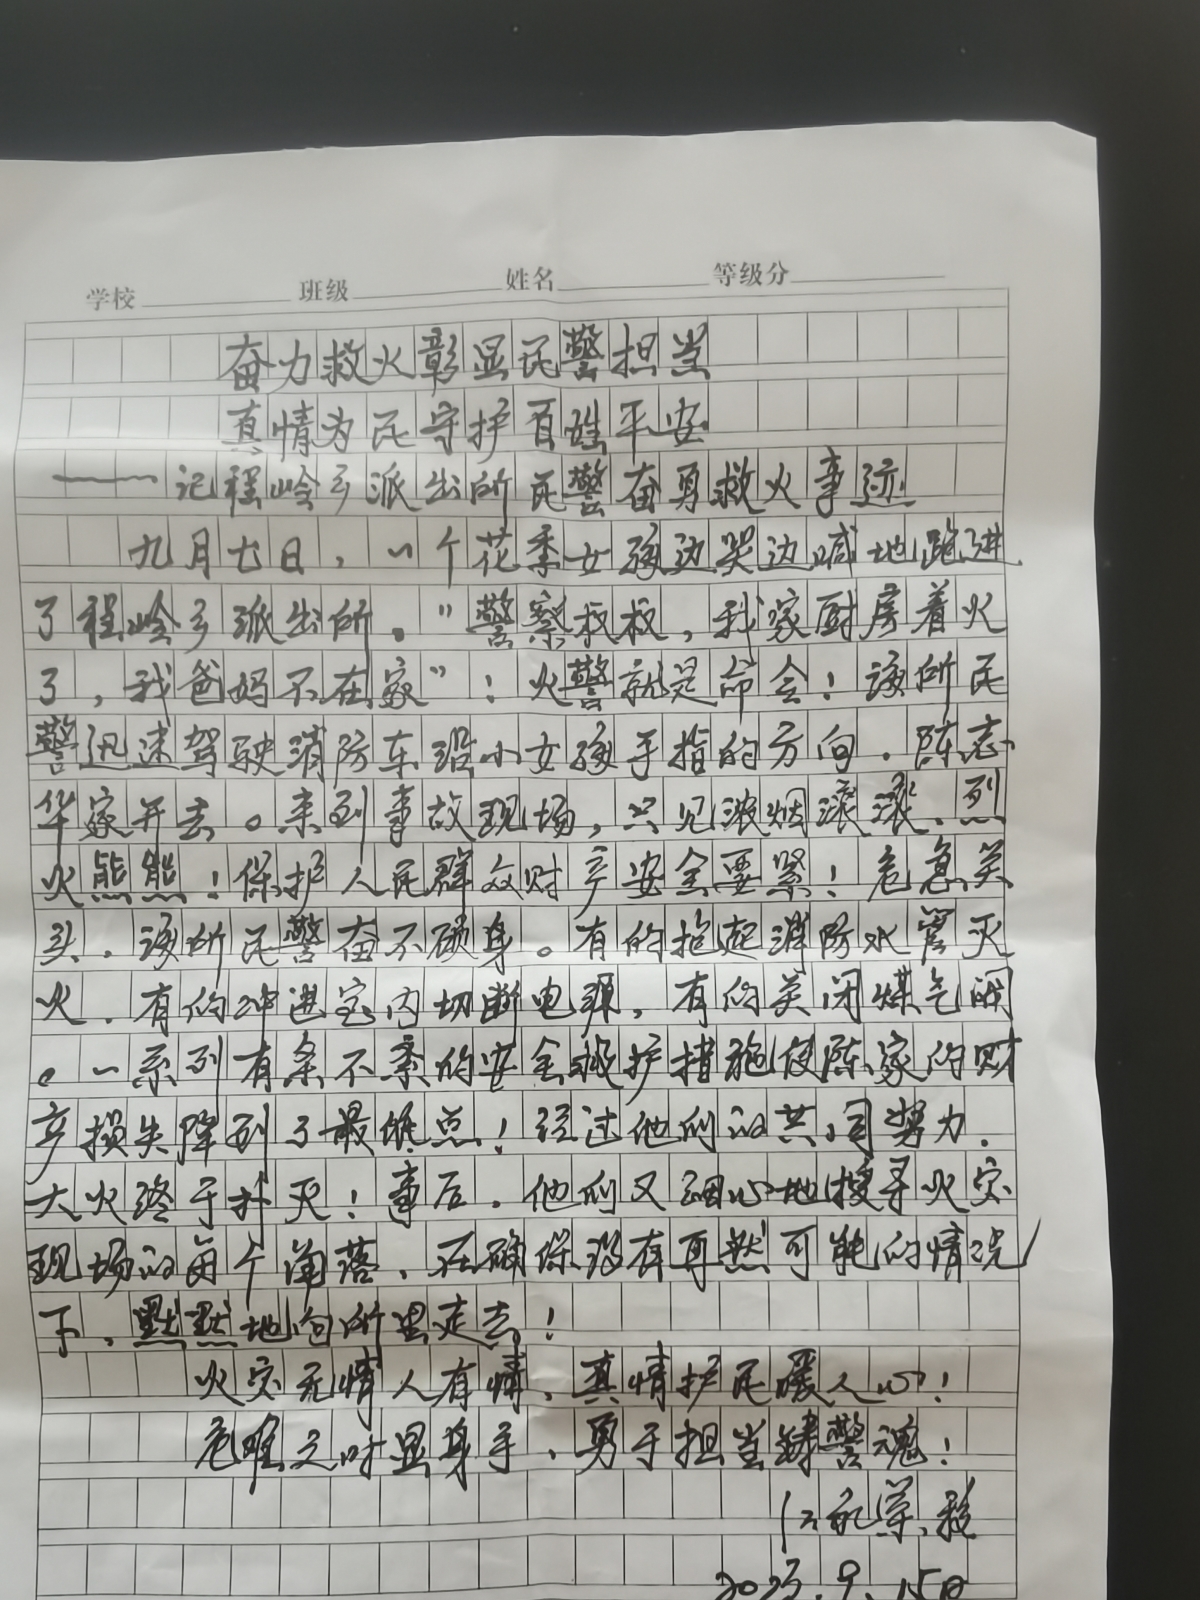 学校 班级 姓名 等级分
奋力救火彰显民警担当
真情为民守护百姓平安
——记程岭乡派出所民警奋勇救火事迹
九月七日，一个花季女孩边哭边喊地跑进
了程岭乡派出所。"警察叔叔，我家厨房着火
了，我爸妈不在家"！火警就是命令！该所民
警迅速驾驶消防车沿小女孩手指的方向，陈志
华家开去。来到事故现场，只见浓烟滚滚、烈
火熊熊！保护人民群众财产安全要紧！危急关
头，该所民警奋不顾身。有的抱起消防水管灭
火，有的冲进室内切断电源，有的关闭煤气阀
。一系列有条不紊的安全救护措施使陈家的财
产损失降到了最低点！经过他们的共同努力，
大火终于扑灭！事后，他们又细心地搜寻火灾
现场的每个角落，在确保没有再燃可能的情况
下，默默地向所里走去！
火灾无情人有情，真情护民暖人心！
危难之时显身手，勇于担当铸警魂！
2023.9.15日